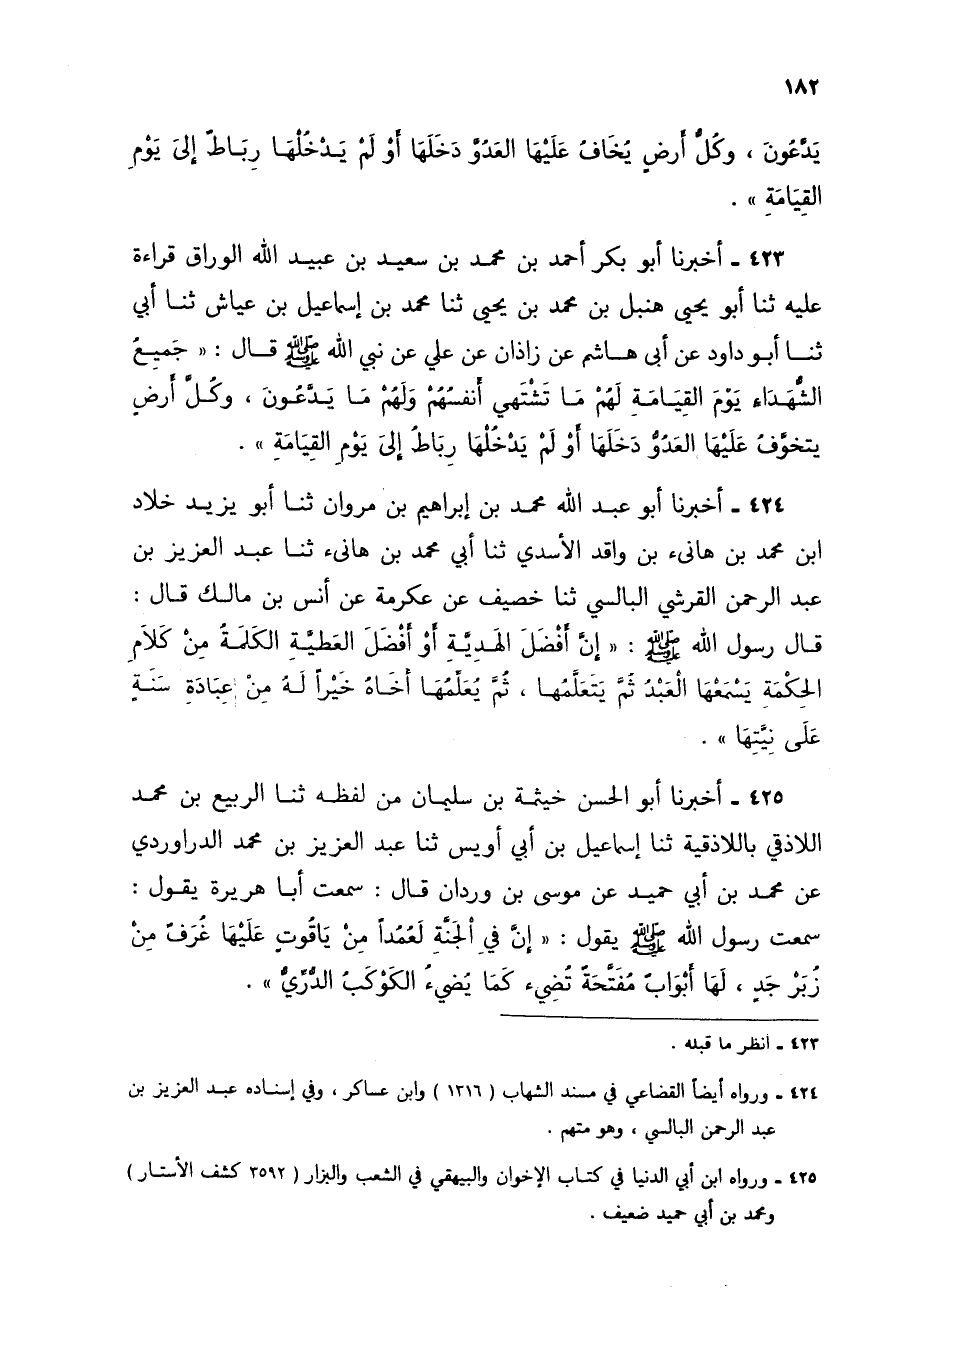 ١٨٢
يَدَّعُونَ ، وكُلُّ أَرضٍ يُخَافُ عَلَيْهَا العَدُوَّ دَخَلَهَا أَوْ لَمْ يَدْخُلْهَا رِبَاطٌ إلىَ يَوْمِ
القِيَامَةِ » .
٤٢٣ ـ أخبرنا أبو بكر أحمد بن محمد بن سعيد بن عبيد الله الوراق قراءة
عليه ثنا أبو يحيى هنبل بن محمد بن يحيى ثنا محمد بن إسماعيل بن عياش ثنا أبي
ثنا أبو داود عن أبى هاشم عن زاذان عن علي عن نبي الله ﷺ قال : « جَمِيعُ
الشُّهَدَاءِ يَوْمَ القِيَامَةِ لَهُمْ مَا تَشْتَهِي أَنفسُهُمْ وَلَهُمْ مَا يَدَّعُونَ ، وكُلُّ أَرضٍ
يتخوَّفُ عَلَيْهَا العَدُوُّ دَخَلَهَا أَوْ لَمْ يَدْخُلْهَا رِبَاطُ إلىَ يَوْمِ القِيَامَةِ » .
٤٢٤ ـ أخبرنا أبو عبد الله محمد بن إبراهيم بن مروان ثنا أبو يزيد خلاد
ابن محمد بن هانىء بن واقد الأسدي ثنا أبي محمد بن هانىء ثنا عبد العزيز بن
عبد الرحمن القرشي البالسي ثنا خصيف عن عكرمة عن أنس بن مالك قال :
قال رسول الله ﷺ : « إِنَّ أَفْضَلَ الهَديَّةِ أَوْ أَفْضَلَ العَطيَّةِ الكَلَمَةُ مِنْ كَلاَمِ
الحِكْمَةِ يَسْمَعُهَا الْعَبْدُ ثُمَّ يَتَعَلَّمُها ، ثُمَّ يُعَلِّمُهَا أَخَاهُ خَيْراً لَهُ مِنْ عِبَادَةِ سَنَةٍ
عَلَى نِيَّتِهَا » .
٤٢٥ ـ أخبرنا أبو الحسن خيثمة بن سليمان من لفظه ثنا الربيع بن محمد
اللاذقي باللاذقية ثنا إسماعيل بن أبي أويس ثنا عبد العزيز بن محمد الدراوردي
عن محمد بن أبي حميد عن موسى بن وردان قال : سمعت أبا هريرة يقول :
سمعت رسول الله ﷺ يقول : « إِنَّ فِي الجَنَّةِ لَعُمُداً مِنْ يَاقُوتٍ عَلَيْهَا غُرَفٌ مِنْ
زُبَرْ جَدٍ ، لَهَا أَبْوَابٌ مُفَتَّحَةً تُضِيء كَمَا يُضيءُ الكَوْكَبُ الدُّرِّيُّ » .
٤٢٣ ـ أنظر ما قبله .
٤٢٤ ـ ورواه أيضاً القضاعي في مسند الشهاب ( ١٣١٦ ) وابن عساكر ، وفي إسناده عبد العزيز بن
عبد الرحمن البالسي ، وهو متهم .
٤٢٥ ـ ورواه ابن أبي الدنيا في كتاب الإخوان والبيهقي في الشعب والبزار ( ٣٥٩٢ كشف الأستار )
ومحمد بن أبي حميد ضعيف .